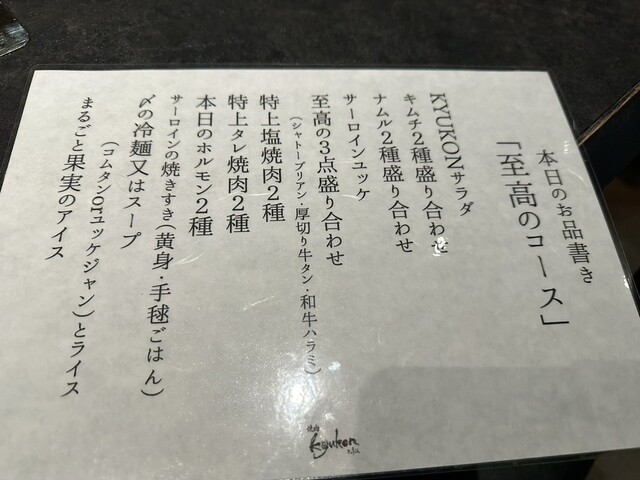 本日のお品書き
「至高のコース」
KYUKONサラダ
キムチ2種盛り合わせ
ナムル2種盛り合わせ
サーロインユッケ
至高の3点盛り合わせ
(シャトーブリアン・厚切り牛タン・和牛ハラミ)
特上塩焼肉2種
特上タレ焼肉2種
本日のホルモン2種
サーロインの焼きすき(黄身・手毬ごはん)
〆の冷麺又はスープ
(コムタンorユッケジャン)とライス
まるごと果実のアイス
焼肉
kyukon